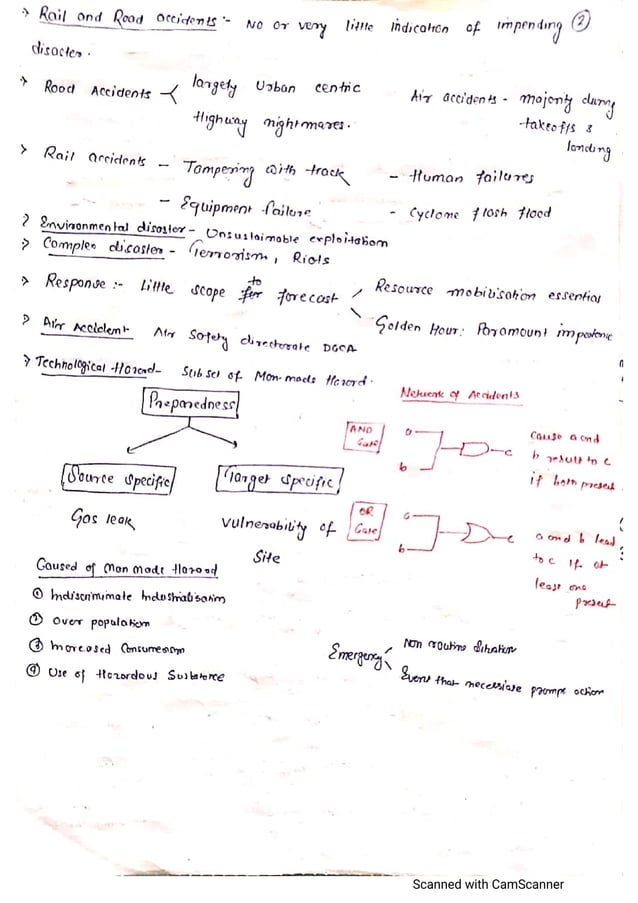 → Rail and Road accidents :- No or very little indication of impending ②
disaster.
→ Road Accidents largely Urban centric
Highway nightmares.
Air accidents - majority during
takeoffs &
landing
→ Rail accidents - Tampering with track - Human failures
- Equipment failure - Cyclone flash flood
→ Environmental disaster - Unsustainable exploitation
→ Complex disaster - Terrorism, Riots
→ Response :- Little scope to forecast Resource mobilisation essential
Golden Hour: Paramount importance
→ Air Accident Air Safety directorate DGCA
→ Technological Hazard - Subset of Man made Hazard.
Preparedness
Source Specific
Gas leak
Target Specific
Vulnerability of
Site
Network of Accidents
AND
Gate
a
b
c
cause a and
b result to c
if both present
OR
Gate
a
b
c
a and b lead
to c if at
least one
present
Caused of Man made Hazard
① Indiscriminate Industrialisation
② Over population
③ Increased Consumerism
④ Use of Hazardous Substance
Emergency Non routine situation
Event that necessiate prompt action
Scanned with CamScanner